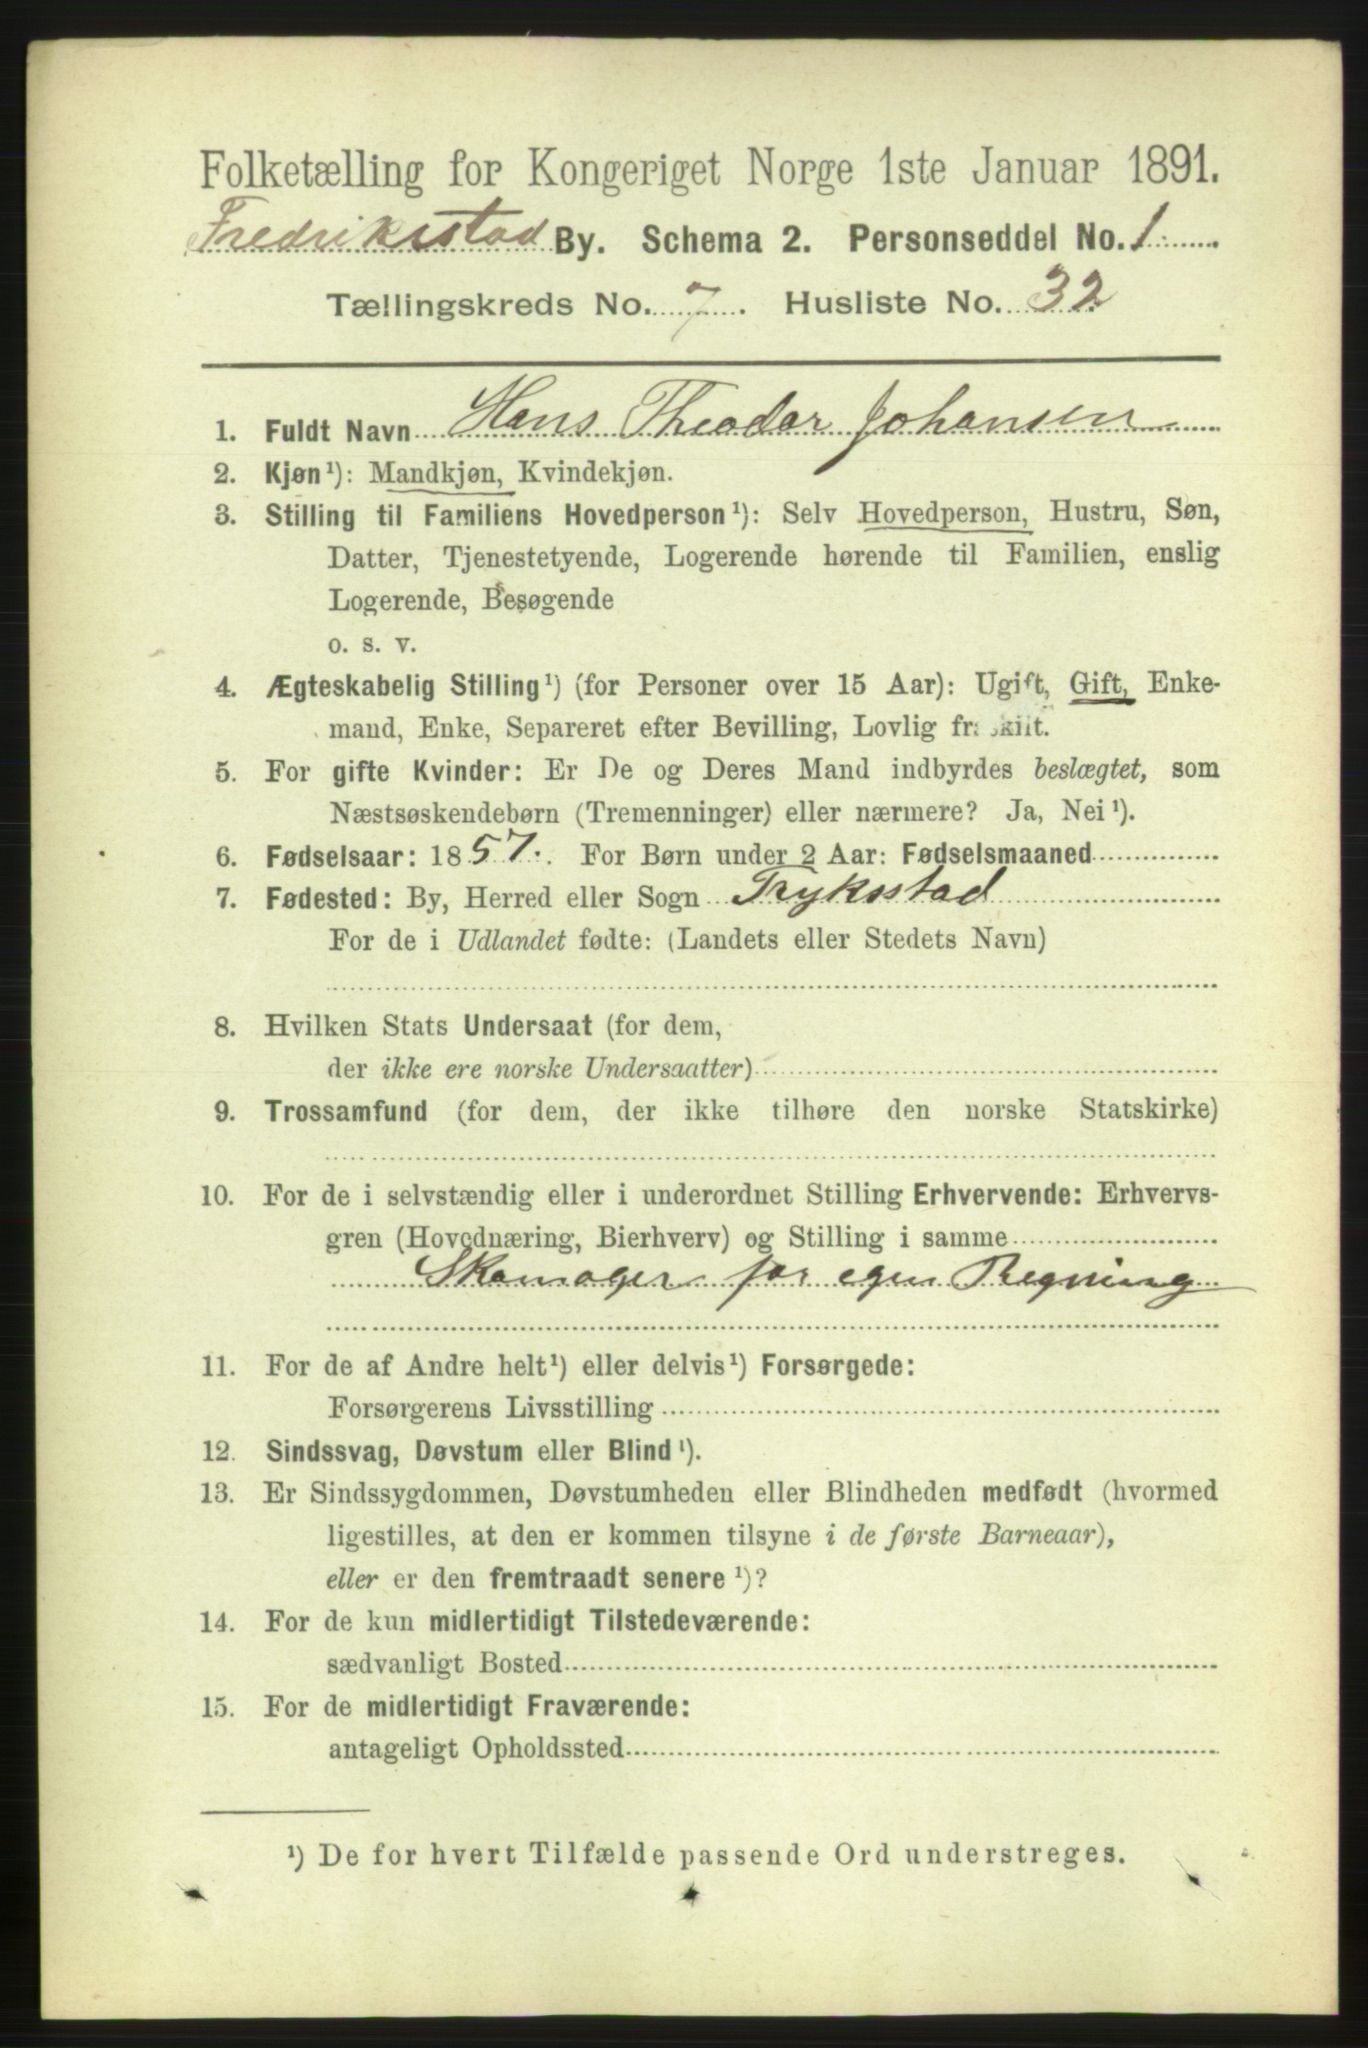 Folketælling for Kongeriget Norge 1ste Januar 1891.
Fredriksstad By. Schema 2. Personseddel No. 1
Tællingskreds No. 7. Husliste No. 32
1. Fuldt Navn Hans Theodor Johansen
2. Kjøn¹): Mandkjøn, Kvindekjøn.
3. Stilling til Familiens Hovedperson¹): Selv Hovedperson, Hustru, Søn,
Datter, Tjenestetyende, Logerende hørende til Familien, enslig
Logerende, Besøgende
o. s. v.
4. Ægteskabelig Stilling¹) (for Personer over 15 Aar): Ugift, Gift, Enke-
mand, Enke, Separeret efter Bevilling, Lovlig fraskilt.
5. For gifte Kvinder: Er De og Deres Mand indbyrdes beslægtet, som
Næstsøskendebørn (Tremenninger) eller nærmere? Ja, Nei¹).
6. Fødselsaar: 1857. For Børn under 2 Aar: Fødselsmaaned
7. Fødested: By, Herred eller Sogn Tryksstad
For de i Udlandet fødte: (Landets eller Stedets Navn)
8. Hvilken Stats Undersaat (for dem,
der ikke ere norske Undersaatter)
9. Trossamfund (for dem, der ikke tilhøre den norske Statskirke)
10. For de i selvstændig eller i underordnet Stilling Erhvervende: Erhvervs-
gren (Hovednæring, Bierhverv) og Stilling i samme
Skomager for egen Regning
11. For de af Andre helt¹) eller delvis¹) Forsørgede:
Forsørgerens Livsstilling
12. Sindssvag, Døvstum eller Blind¹).
13. Er Sindssygdommen, Døvstumheden eller Blindheden medfødt (hvormed
ligestilles, at den er kommen tilsyne i de første Barneaar),
eller er den fremtraadt senere¹)?
14. For de kun midlertidigt Tilstedeværende:
sædvanligt Bosted
15. For de midlertidigt Fraværende:
antageligt Opholdssted
¹) De for hvert Tilfælde passende Ord understreges.